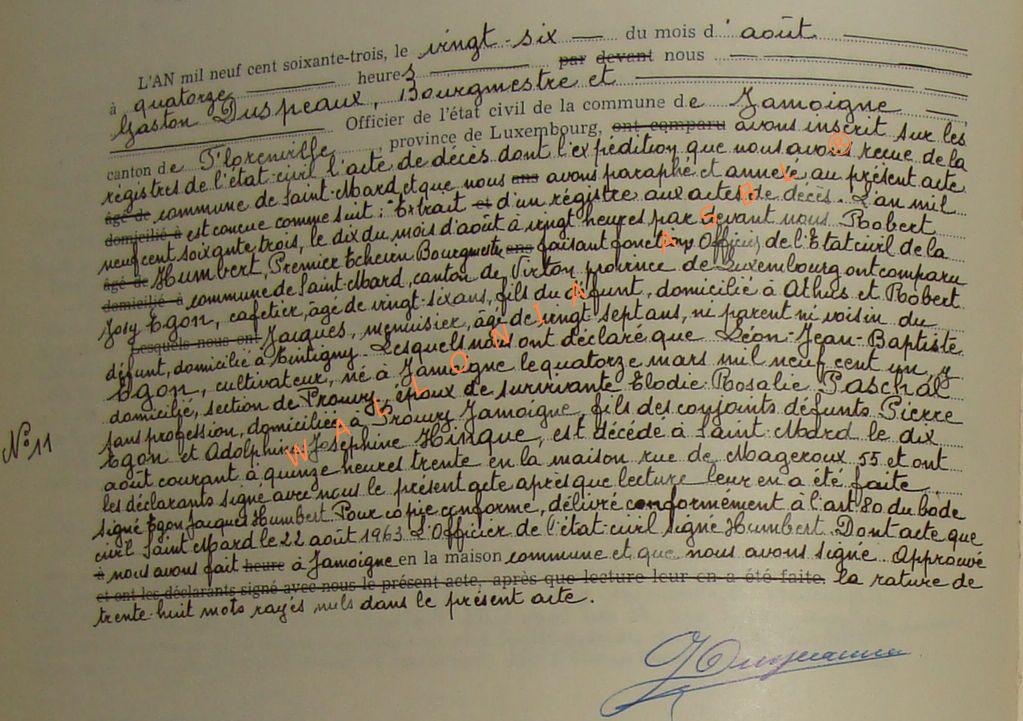 L'AN mil neuf cent soixante-trois, le vingt-six du mois d'août
à quatorze heures par devant nous
Gaston Duspeaux, Bourgmestre et
Officier de l'état civil de la commune de Jamoigne
canton de Florenville, province de Luxembourg, ont comparu avons inscrit sur les
régistres de l'état-civil l'acte de décès dont l'expédition que nous avons recue de la
âgé de commune de Saint-Mard et que nous ans avons paraphé et annexé au présent acte
domicilié à est concue comme suit : "Extrait et d'un régistre aux actes de décès. L'an mil
neuf cent soixante trois, le dix du mois d'août à vingt heures par devant nous Robert
âgé de Humbert, Premier Echevin Bourgmestre ans faisant fonctions Officier de l'Etat civil de la
domicilié à commune de Saint-Mard, canton de Virton province de Luxembourg ont comparu
Josy Egon, cafetier, âgé de vingt-six ans, fils du défunt, domicilié à Athus et Robert
Lesquels nous ont Jacques, menuisier, âgé de vingt sept ans, ni parent ni voisin du
défunt, domicilié à Tintigny. Lesquels nous ont déclaré que Léon-Jean-Baptiste
Egon, cultivateur, né à Jamoigne le quatorze mars mil neuf cent un, y
domicilié, section de Prouvy, époux de survivante Elodie Rosalie Paschal
sans profession, domiciliée à Prouvy Jamoigne, fils des conjoints défunts Pierre
Egon et Adolphine Josephine Hinque, est décédé à Saint-Mard le dix
N° 11
août courant à quinze heures trente en la maison rue de Mageroux 55 et ont
les déclarants signé avec nous le présent acte après que lecture leur en a été faite
signé Egon Jacques Humbert. Pour copie conforme, délivré conformément à l'art 80 du Code
civil Saint Mard le 22 août 1963 L'Officier de l'état-civil signé Humbert. Dont acte que
à nous avons fait heure à Jamoigne en la maison commune et que nous avons signé. Approuvé
et ont les déclarants signé avec nous le présent acte, après que lecture leur en a été faite. la rature de
trente-huit mots rayés nuls dans le présent acte.
WALLONIA ASBL ®